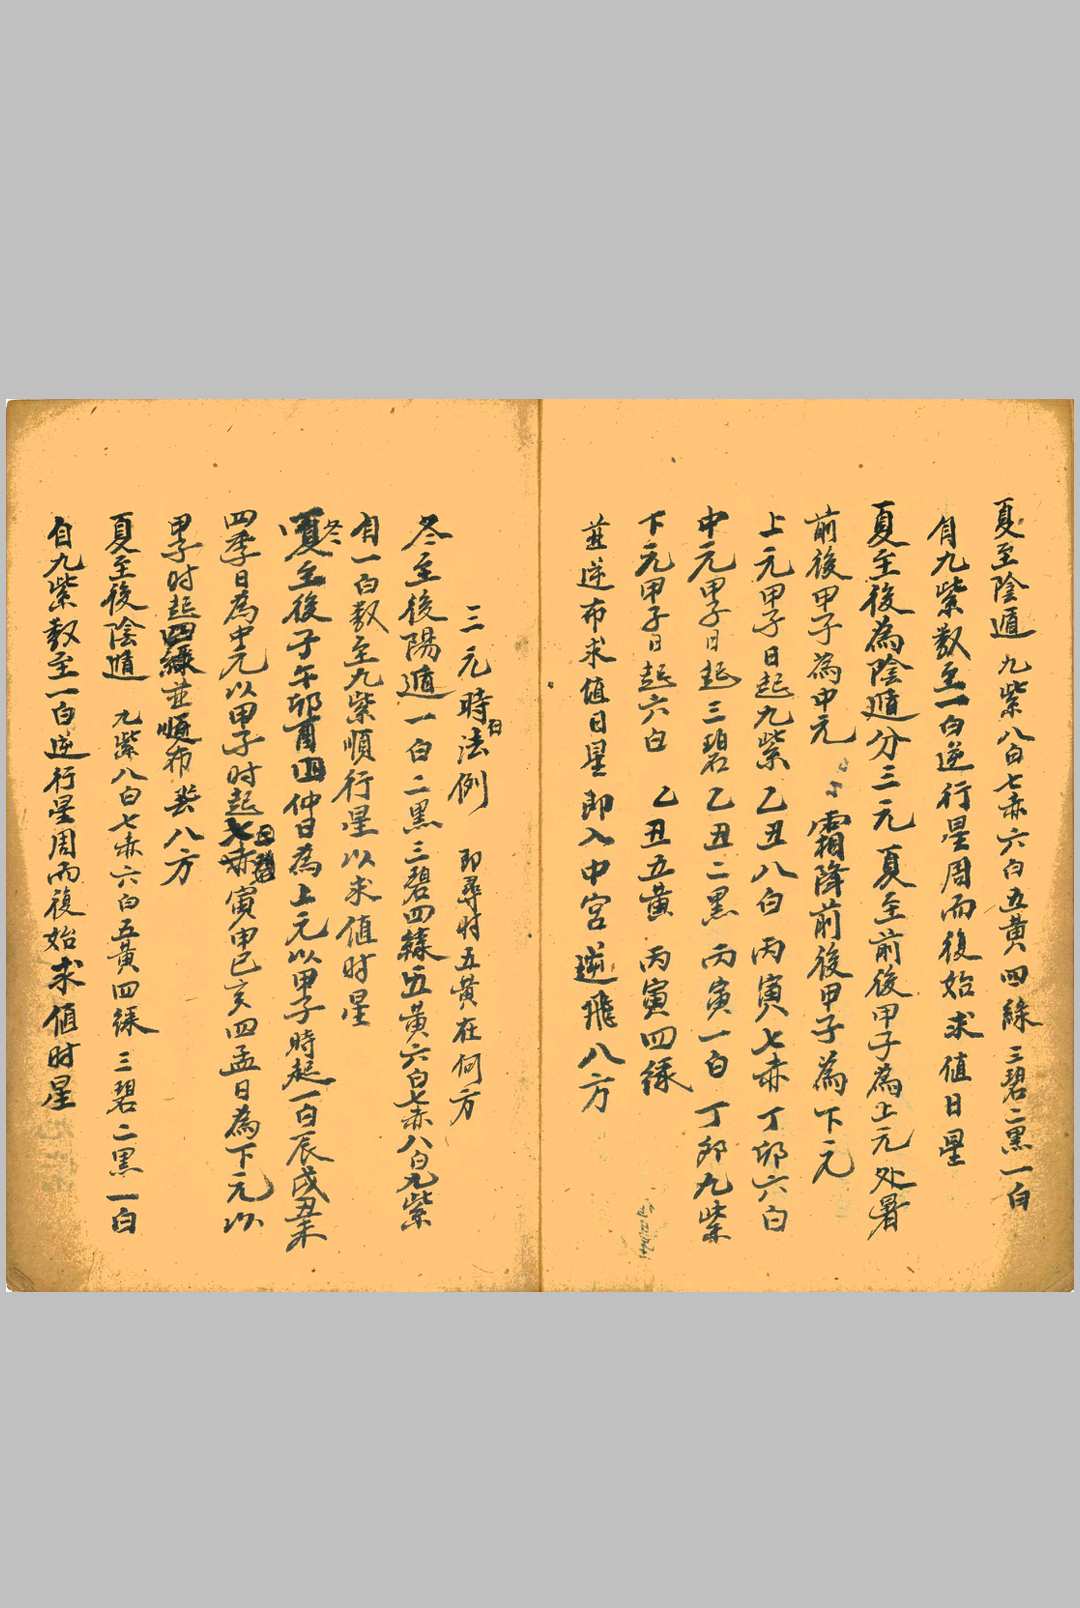 夏至陰遁 九紫八白七赤六白五黄四綠三碧二黑一白
自九紫数至一白逆行星周而復始求值日星
夏至後為陰遁分三元 夏至前後甲子為上元处暑
前後甲子為中元 霜降前後甲子為下元
上元甲子日起九紫 乙丑八白 丙寅七赤 丁卯六白
中元甲子日起三碧 乙丑二黑 丙寅一白 丁卯九紫
下元甲子日起六白 乙丑五黄 丙寅四綠
並逆布求值日星即入中宮逆飛八方
三元時法例 即尋时五黄在何方
冬至後陽遁一白二黑三碧四綠五黄六白七赤八白九紫
自一白数至九紫順行星以求值时星
冬至後子午卯酉四仲日為上元以甲子時起一白辰戌丑未
四季日為中元以甲子时起七赤寅申巳亥四孟日為下元以
甲子时起四綠並順布 八方
夏至後陰遁 九紫八白七赤六白五黄四綠三碧二黑一白
自九紫数至一白逆行星周而復始求值时星